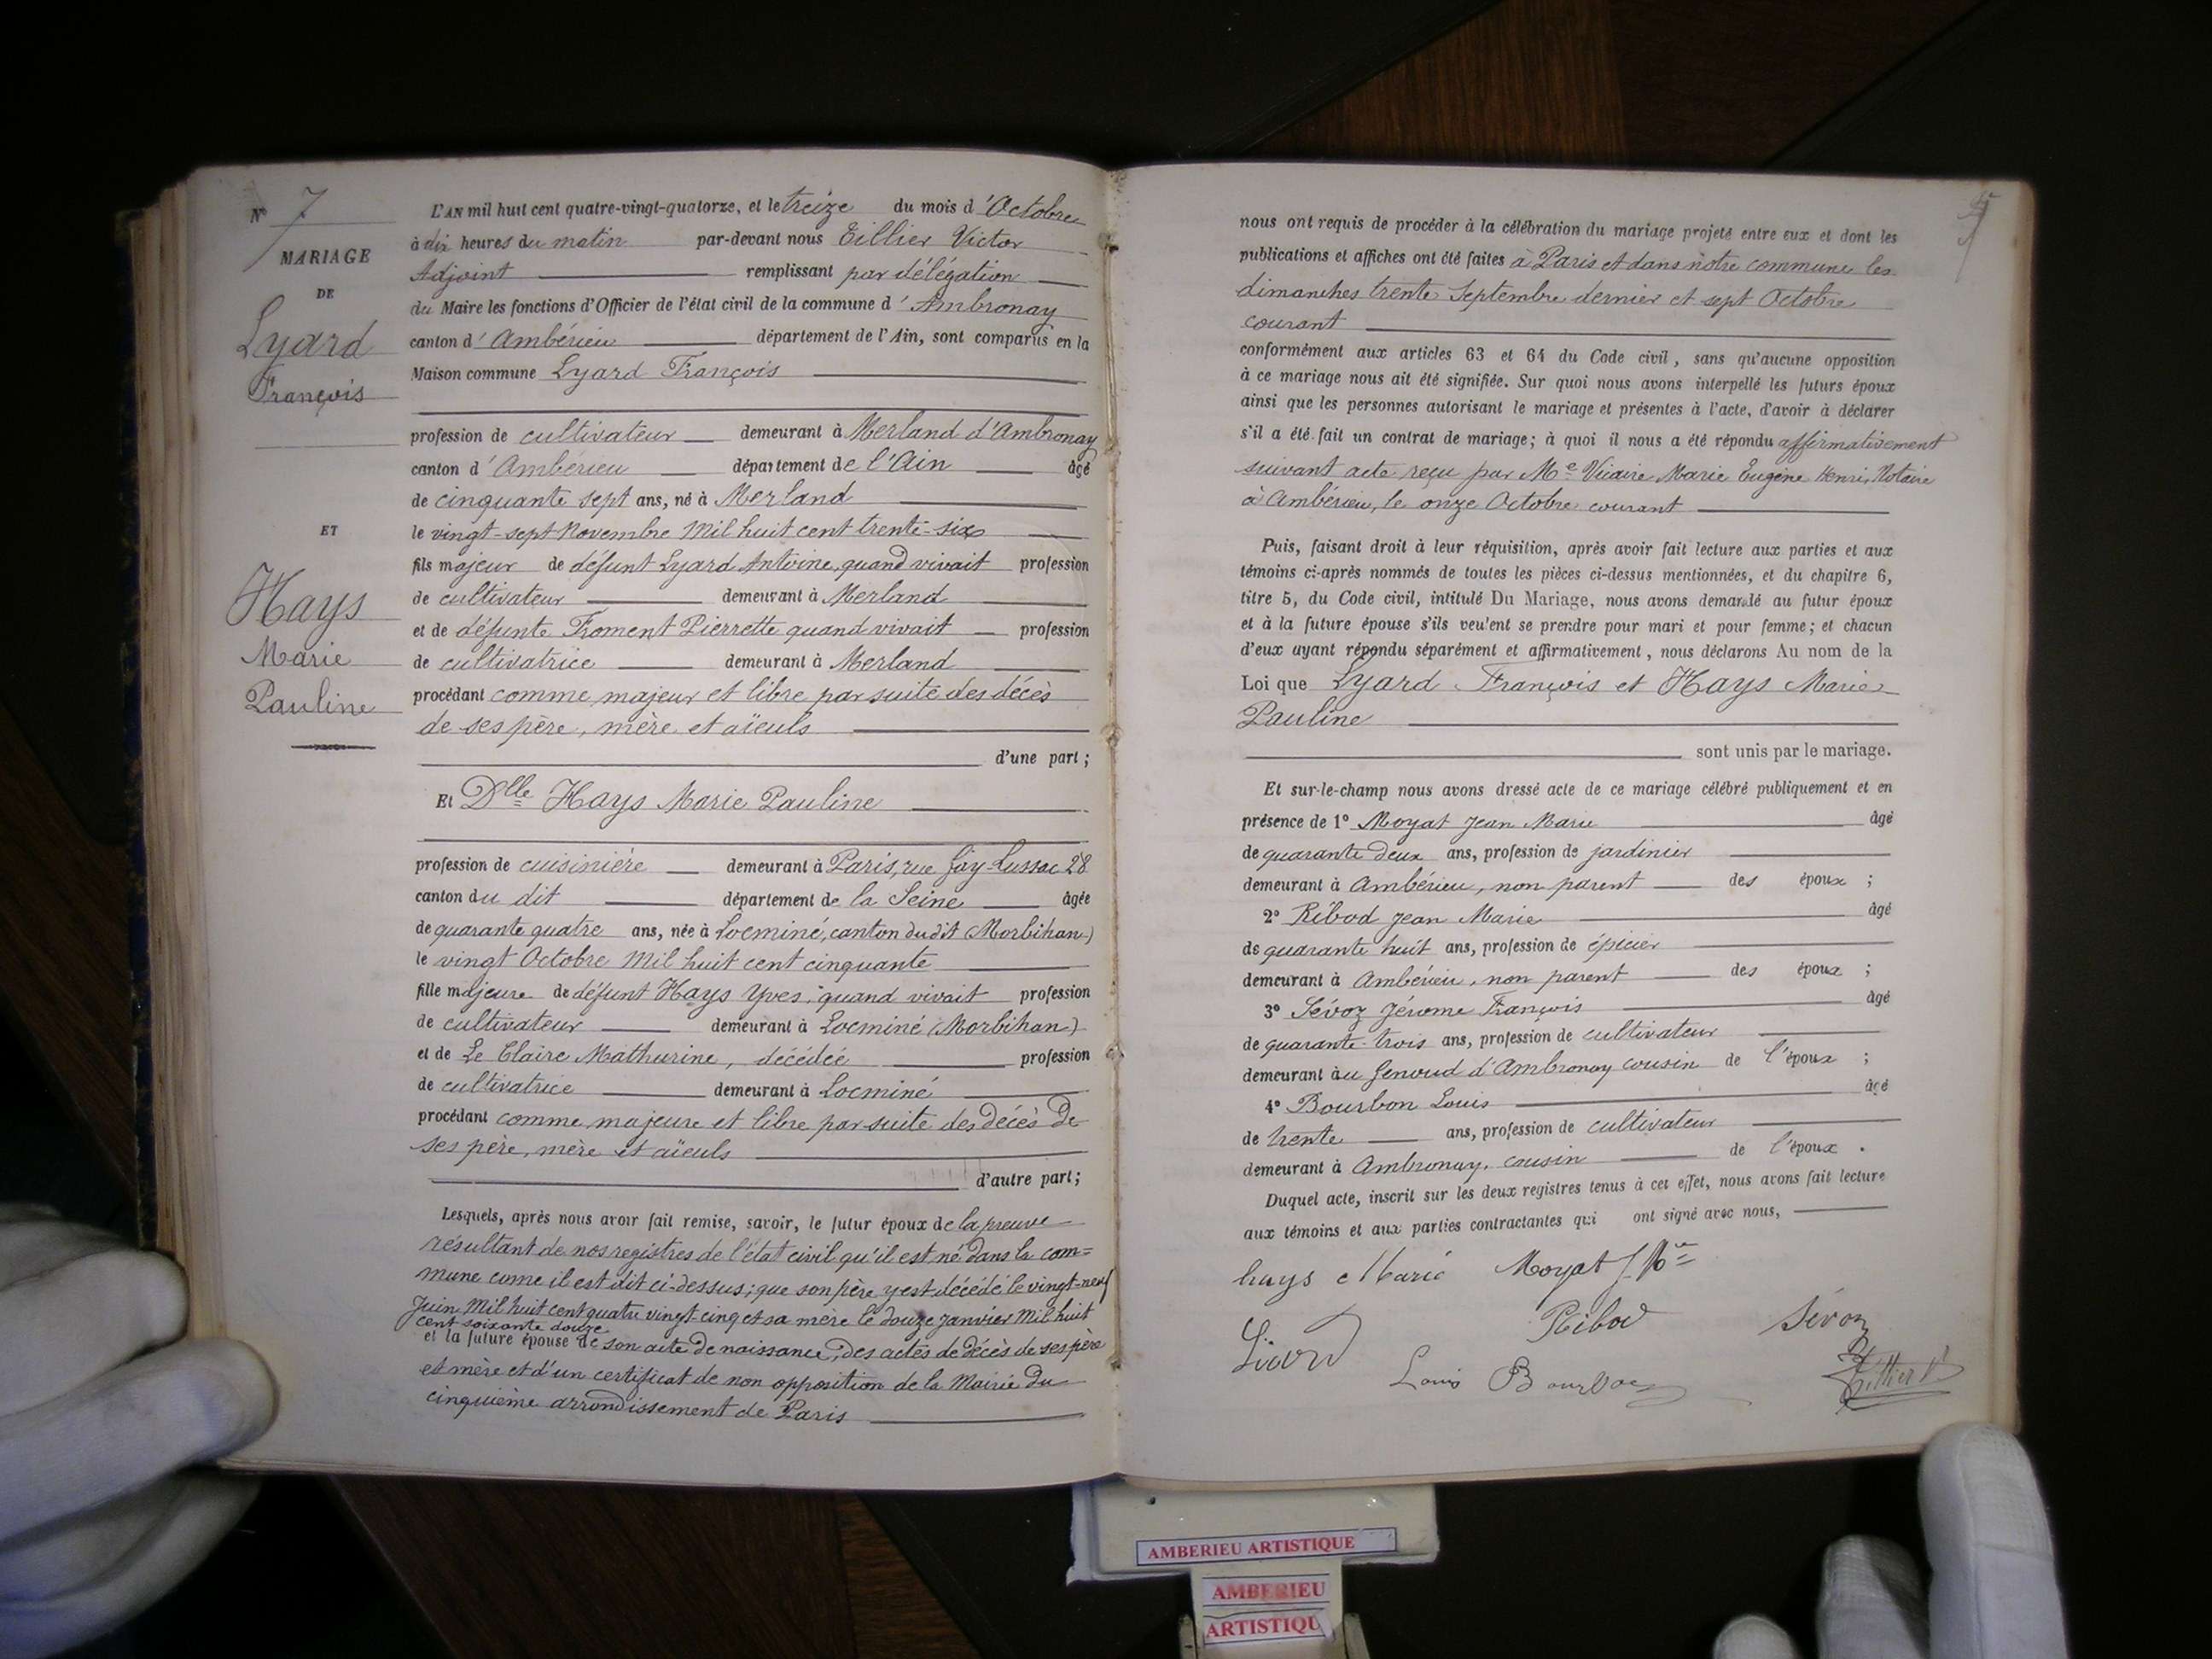 N° 7
MARIAGE
DE
Lyard
François
ET
Hays
Marie
Pauline
L'AN mil huit cent quatre-vingt-quatorze, et le treize du mois d'Octobre
à dix heures du matin par-devant nous Tillier Victor
Adjoint remplissant par délégation
du Maire les fonctions d'Officier de l'état civil de la commune d'Ambronay
canton d'Ambérieu département de l'Ain, sont comparus en la
Maison commune Lyard François
profession de cultivateur demeurant à Merland d'Ambronay
canton d'Ambérieu département de l'Ain âgé
de cinquante sept ans, né à Merland
le vingt-sept Novembre Mil huit cent trente-six
fils majeur de défunt Lyard Antoine, quand vivait profession
de cultivateur demeurant à Merland
et de défunte Froment Pierrette quand vivait profession
de cultivatrice demeurant à Merland
procédant comme majeur et libre par suite des décès
de ses père, mère et aïeuls
d'une part;
Et Dlle Hays Marie Pauline
profession de cuisinière demeurant à Paris, rue Gay-Lussac 28
canton du dit département de la Seine âgée
de quarante quatre ans, née à Locminé, canton dudit (Morbihan)
le vingt Octobre Mil huit cent cinquante
fille majeure de défunt Hays Yves, quand vivait profession
de cultivateur demeurant à Locminé (Morbihan)
et de Le Claire Mathurine, décédée profession
de cultivatrice demeurant à Locminé
procédant comme majeure et libre par suite des décès de
ses père, mère et aïeuls
d'autre part;
Lesquels, après nous avoir fait remise, savoir, le futur époux de la preuve
résultant de nos registres de l'état civil qu'il est né dans la com=
mune come il est dit ci-dessus; que son père y est décédé le vingt-neuf
Juin Mil huit cent quatre vingt-cinq et sa mère le douze Janvier Mil huit
cent soixante douze
et la future épouse de son acte de naissance, des actes de décès de ses père
et mère et d'un certificat de non opposition de la Mairie du
cinquième arrondissement de Paris
nous ont requis de procéder à la célébration du mariage projeté entre eux et dont les
publications et affiches ont été faites à Paris et dans notre commune les
dimanches trente Septembre dernier et sept Octobre
courant
conformément aux articles 63 et 64 du Code civil, sans qu'aucune opposition
à ce mariage nous ait été signifiée. Sur quoi nous avons interpellé les futurs époux
ainsi que les personnes autorisant le mariage et présentes à l'acte, d'avoir à déclarer
s'il a été fait un contrat de mariage; à quoi il nous a été répondu affirmativement
suivant acte reçu par Me Vicaire Marie Eugène Henri, Notaire
à Ambérieu, le onze Octobre courant
Puis, faisant droit à leur réquisition, après avoir fait lecture aux parties et aux
témoins ci-après nommés de toutes les pièces ci-dessus mentionnées, et du chapitre 6,
titre 5, du Code civil, intitulé Du Mariage, nous avons demandé au futur époux
et à la future épouse s'ils veulent se prendre pour mari et pour femme; et chacun
d'eux ayant répondu séparément et affirmativement, nous déclarons Au nom de la
Loi que Lyard François et Hays Marie
Pauline
sont unis par le mariage.
Et sur-le-champ nous avons dressé acte de ce mariage célébré publiquement et en
présence de 1° Moyat Jean Marie âgé
de quarante deux ans, profession de jardinier
demeurant à Ambérieu, non parent des époux ;
2° Ribod Jean Marie âgé
de quarante huit ans, profession de épicier
demeurant à Ambérieu, non parent des époux ;
3° Sévoz Jérome François âgé
de quarante-trois ans, profession de cultivateur
demeurant au Genoud d'Ambronay cousin de l'époux ;
4° Bourbon Louis âgé
de trente ans, profession de cultivateur
demeurant à Ambronay, cousin de l'époux .
Duquel acte, inscrit sur les deux registres tenus à cet effet, nous avons fait lecture
aux témoins et aux parties contractantes qui ont signé avec nous,
hays Marie Moyat J. M
Ribod Sévoz
Liard
Louis Bourbon Tillier V
AMBERIEU ARTISTIQUE
AMBERIEU
ARTISTIQU